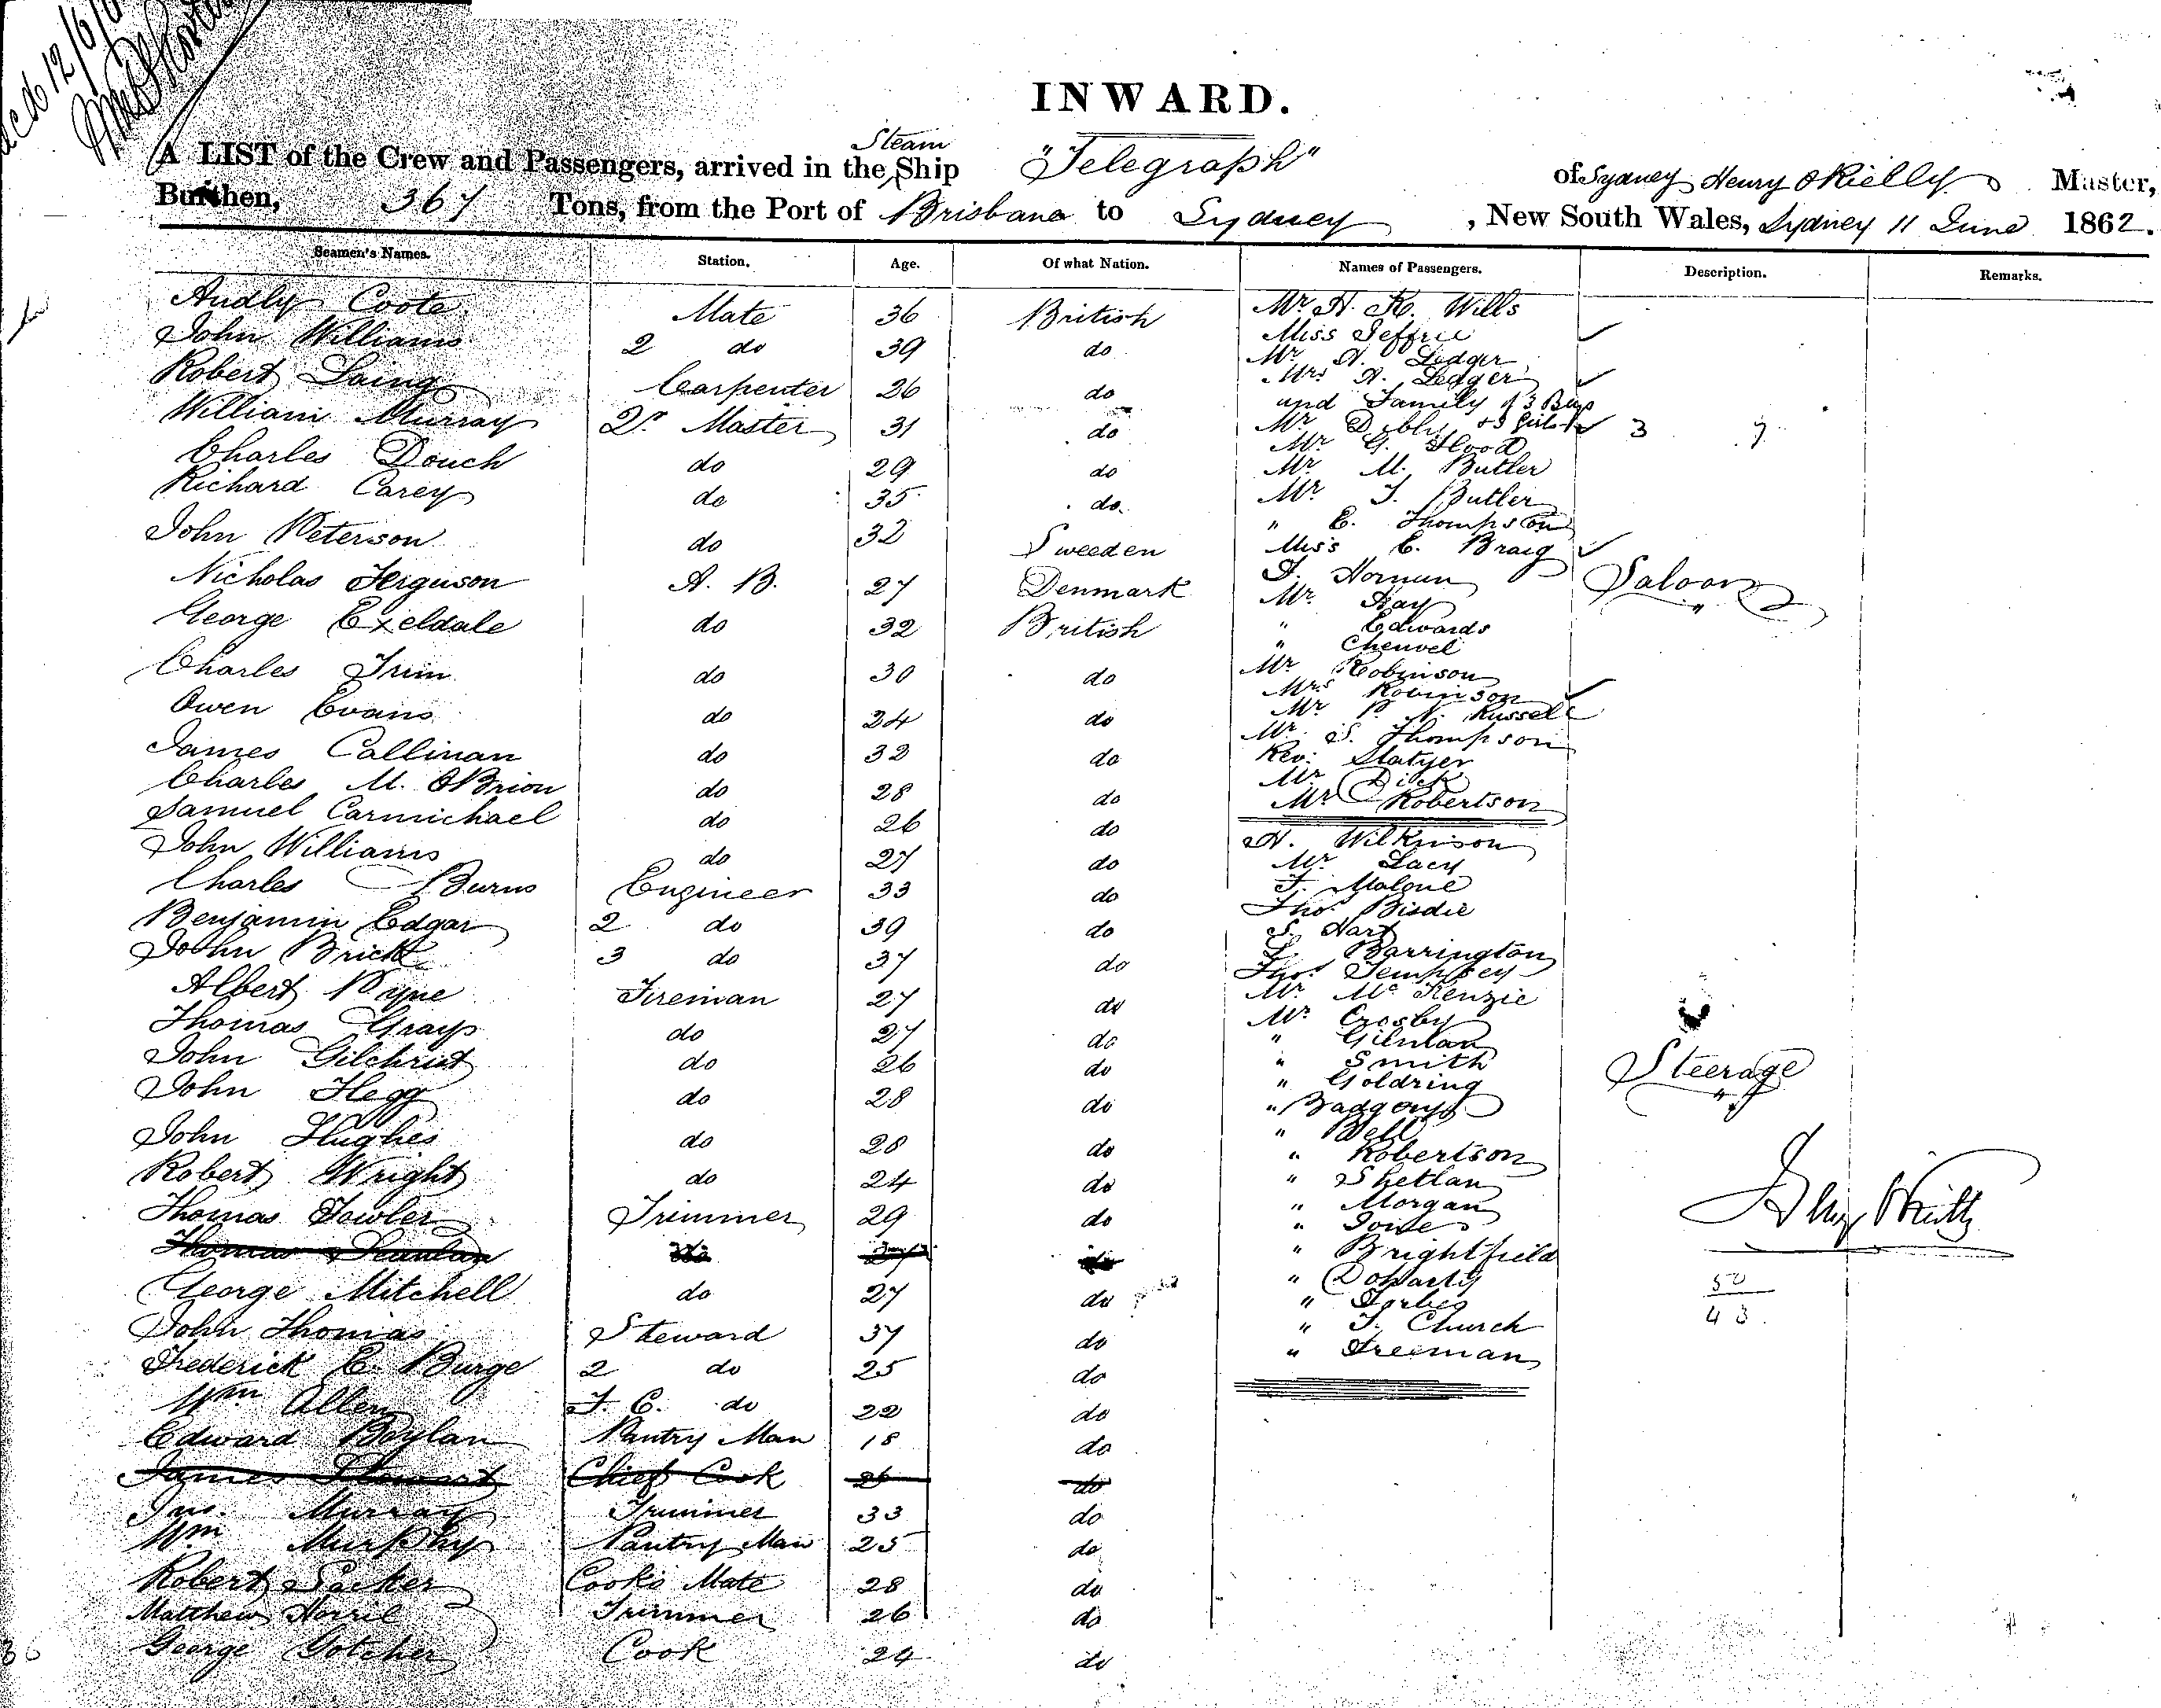 INWARD.
A LIST of the Crew and Passengers, arrived in the Steam Ship "Telegraph" of Sydney Henry O'Rielly Master,
Burthen, 367 Tons, from the Port of Brisbane to Sydney, New South Wales, Sydney 11 June 1862.
Seamen's Names. Station. Age. Of what Nation. Names of Passengers. Description. Remarks.
Audly Coote Mate 36 British
John Williams 2 do 39 do
Robert Laing Carpenter 26 do
William Murray Qr Master 31 do
Charles Douch do 29 do
Richard Carey do 35 do
John Peterson do 32 Sweeden
Nicholas Ferguson A. B. 27 Denmark
George Exeldale do 32 British
Charles Trim do 30 do
Owen Evans do 24 do
James Callinan do 32 do
Charles M. OBrion do 28 do
Samuel Carmichael do 26 do
John Williams do 27 do
Charles Burns Engineer 33 do
Benjamin Edgar 2 do 39 do
John Brick 3 do 37 do
Albert Pyne Fireman 27 do
Thomas Grays do 27 do
John Gilchrist do 26 do
John Hegg do 28 do
John Hughes do 28 do
Robert Wright do 24 do
Thomas Fowler Trimmer 29 do
Thomas Scanlan do
George Mitchell do 27 do
John Thomas Steward 37 do
Frederick E. Burge 2 do 25 do
Wm Allen F. C. do 22 do
Edward Boylan Pantry Man 18 do
James Stewart Chief Cook 26 do
Jno. Murray Trimmer 33 do
Wm Murphy Pantry Man 25 do
Robert Packer Cooks Mate 28 do
Matthew Horril Trimmer 26 do
George Gotcher Cook 24 do
Mr H. K. Wills
Miss Jeffrie
Mr A. Ledger
Mrs A. Ledger
and Family of 3 Boys
Mr Dibly & 3 Girls 3 7
Mr G. Flood
Mr M. Butler
Mr J. Butler
" E. Thompson
Miss E. Braig
F. Hornun Saloon
Mr Hay "
" Edwards
" Cheuvel
Mr Robinson
Mrs Robinson
Mr P. N. Russell
Mr S. Thompson
Rev. Slatyer
Mr Dick
Mr Robertson
H. Wilkinson
Mr Lacy
F. Malone
Thos Bisdie
S. Hart
Barrington
Thos Dempsey
Mr McKenzie
Mr Crosby
" Gilman
" Smith Steerage
" Goldring "
"
" Bell
" Robertson
" Shetlan
" Morgan
"
" Brightfield
" Doharty
" Forbes
" J. Church
" Freeman
50
43